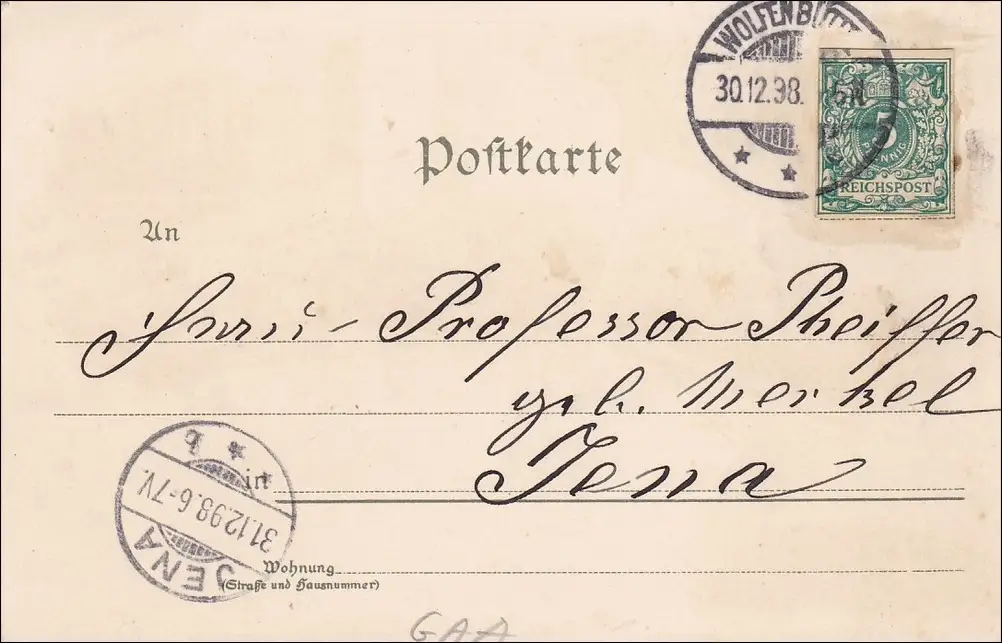 WOLFENBÜTT
30.12.98. 5N
5
PFENNIG
REICHSPOST
Postkarte
An
Frau Professor Pheiffer
geb. Merkel
in Jena
JENA
31.12.98.6-7V.
* * b
Wohnung
(Straße und Hausnummer)
GAA